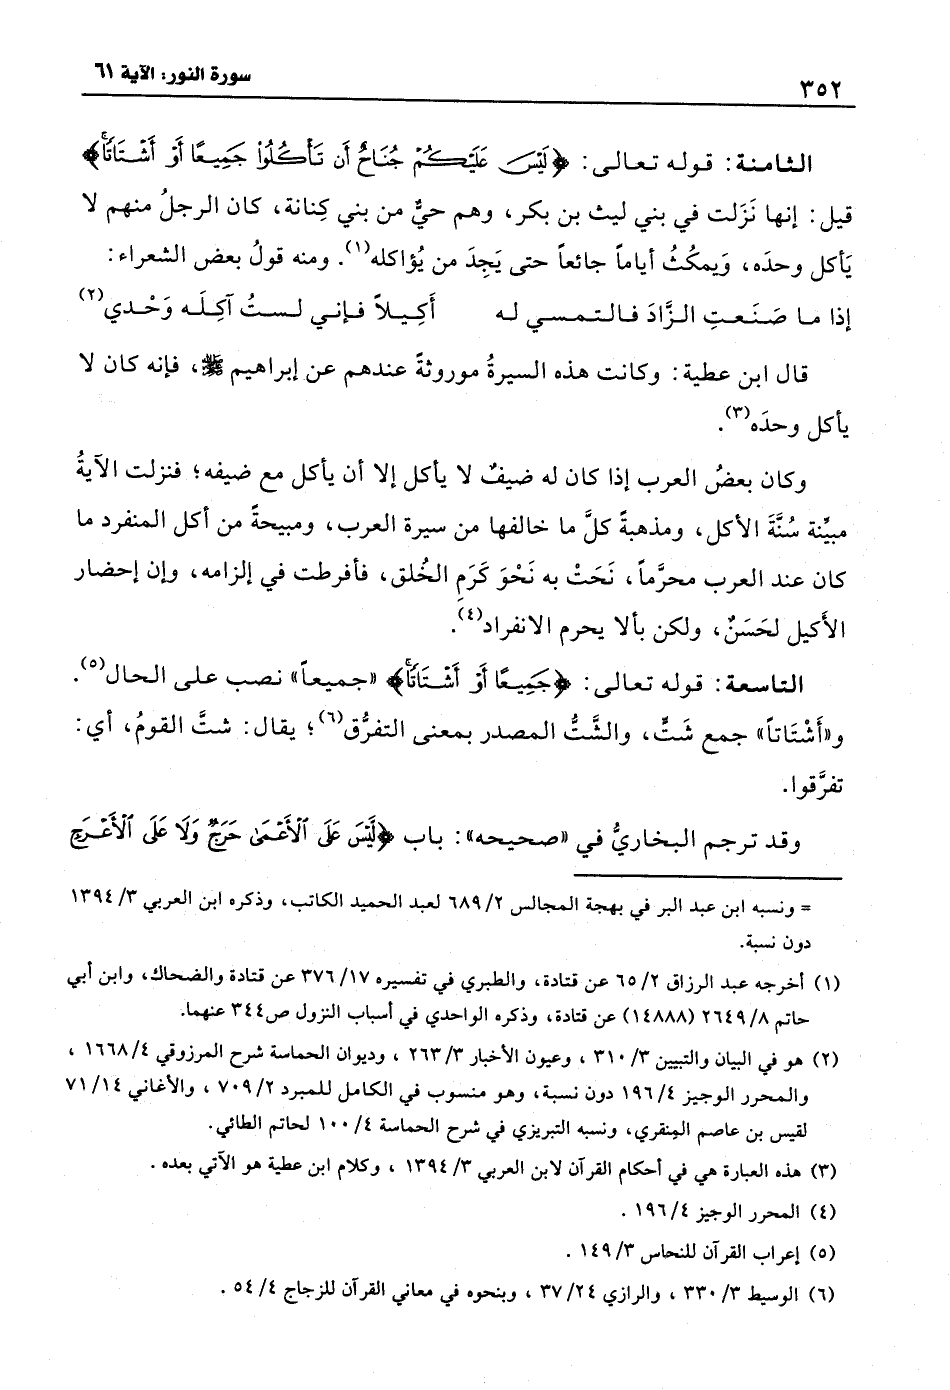 ٣٥٢
سورة النور: الآية ٦١
الثامنة: قوله تعالى: ﴿لَيْسَ عَلَيْكُمْ جُنَاحٌ أَن تَأْكُلُواْ جَمِيعًا أَوْ أَشْتَاتًا﴾
قيل: إنها نَزَلت في بني ليث بن بكر، وهم حيٌّ من بني كِنانة، كان الرجلُ منهم لا
يَأكل وحدَه، وَيمكُثُ أياماً جائعاً حتى يَجِدَ من يُؤاكله(١). ومنه قولُ بعض الشعراء:
إذا ما صَنَعتِ الزَّادَ فالتمسي له أَكِيلاً فإني لستُ آكِلَه وَحْدي(٢)
قال ابن عطية: وكانت هذه السيرةُ موروثةً عندهم عن إبراهيم ﷺ، فإنه كان لا
يأكل وحدَه(٣).
وكان بعضُ العرب إذا كان له ضيفٌ لا يأكل إلا أن يأكل مع ضيفه؛ فنزلت الآيةُ
مبيِّنة سُنَّةَ الأكل، ومذهبةً كلَّ ما خالفها من سيرة العرب، ومبيحةً من أكل المنفرد ما
كان عند العرب محرَّماً، نَحَتْ به نَحْوَ كَرَمِ الخُلق، فأفرطت في إلزامه، وإن إحضار
الأَكيل لحَسَنٌ، ولكن بألا يحرم الانفراد(٤).
التاسعة: قوله تعالى: ﴿جَمِيعًا أَوْ أَشْتَاتًا﴾ «جميعاً» نصب على الحال(٥).
و«أَشْتَاتاً» جمع شَتٍّ، والشَّتُّ المصدر بمعنى التفرُّق(٦)؛ يقال: شتَّ القومُ، أي:
تفرَّقوا.
وقد ترجم البخاريُّ في «صحيحه»: باب ﴿لَّيْسَ عَلَى ٱلْأَعْمَىٰ حَرَجٌ وَلَا عَلَى ٱلْأَعْرَجِ
= ونسبه ابن عبد البر في بهجة المجالس ٢/ ٦٨٩ لعبد الحميد الكاتب، وذكره ابن العربي ٣/ ١٣٩٤
دون نسبة.
(١) أخرجه عبد الرزاق ٢/ ٦٥ عن قتادة، والطبري في تفسيره ١٧/ ٣٧٦ عن قتادة والضحاك، وابن أبي
حاتم ٨/ ٢٦٤٩ (١٤٨٨٨) عن قتادة، وذكره الواحدي في أسباب النزول ص٣٤٤ عنهما.
(٢) هو في البيان والتبيين ٣/ ٣١٠، وعيون الأخبار ٣/ ٢٦٣، وديوان الحماسة شرح المرزوقي ٤/ ١٦٦٨،
والمحرر الوجيز ٤/ ١٩٦ دون نسبة، وهو منسوب في الكامل للمبرد ٢/ ٧٠٩، والأغاني ١٤/ ٧١
لقيس بن عاصم المِنقري، ونسبه التبريزي في شرح الحماسة ٤/ ١٠٠ لحاتم الطائي.
(٣) هذه العبارة هي في أحكام القرآن لابن العربي ٣/ ١٣٩٤، وكلام ابن عطية هو الآتي بعده.
(٤) المحرر الوجيز ٤/ ١٩٦.
(٥) إعراب القرآن للنحاس ٣/ ١٤٩.
(٦) الوسيط ٣/ ٣٣٠، والرازي ٢٤/ ٣٧، وبنحوه في معاني القرآن للزجاج ٤/ ٥٤.